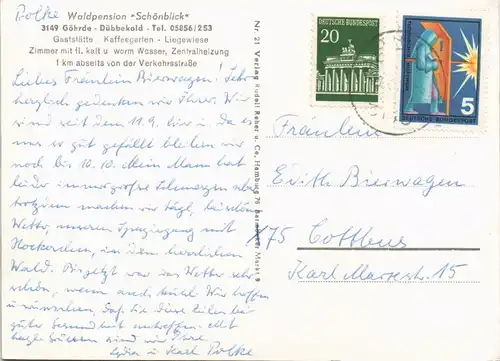 Polke
Waldpension "Schönblick"
3149 Göhrde - Dübbekold - Tel. 05856/253
Gaststätte Kaffeegarten - Liegewiese
Zimmer mit fl. kalt u warm Wasser, Zentralheizung
1 km abseits von der Verkehrsstraße
Liebes Fräulein Bierwagen! Sehr
herzlich gedenken wir Ihrer. Wir
sind seit dem 11.9. hier u. da es
uns so gut gefällt bleiben wir
noch bis 10.10. Mein Mann hat
leider immer große Schmerzen aber
trotzdem machen wir tägl. bei schön
Wetter, unseren Spaziergang mit
in dem herrlichen
Wald. Bis jetzt war das Wetter sehr
schön, wenn auch kühl. Wir hoffen
u. wünschen, daß Sie diese Zeilen bei
guter Gesundheit antreffen. Mit
Grüssen sind wir Ihre
Lydia u. Karl Polke
Nr. 21 Verlag Rudolf Reher u. Co. Hamburg 76 Markt 9
DEUTSCHE BUNDESPOST
20
5
DEUTSCHE BUNDESPOST
Fräulein
Edith Bierwagen
X75 Cottbus
Karl Marxstr. 15